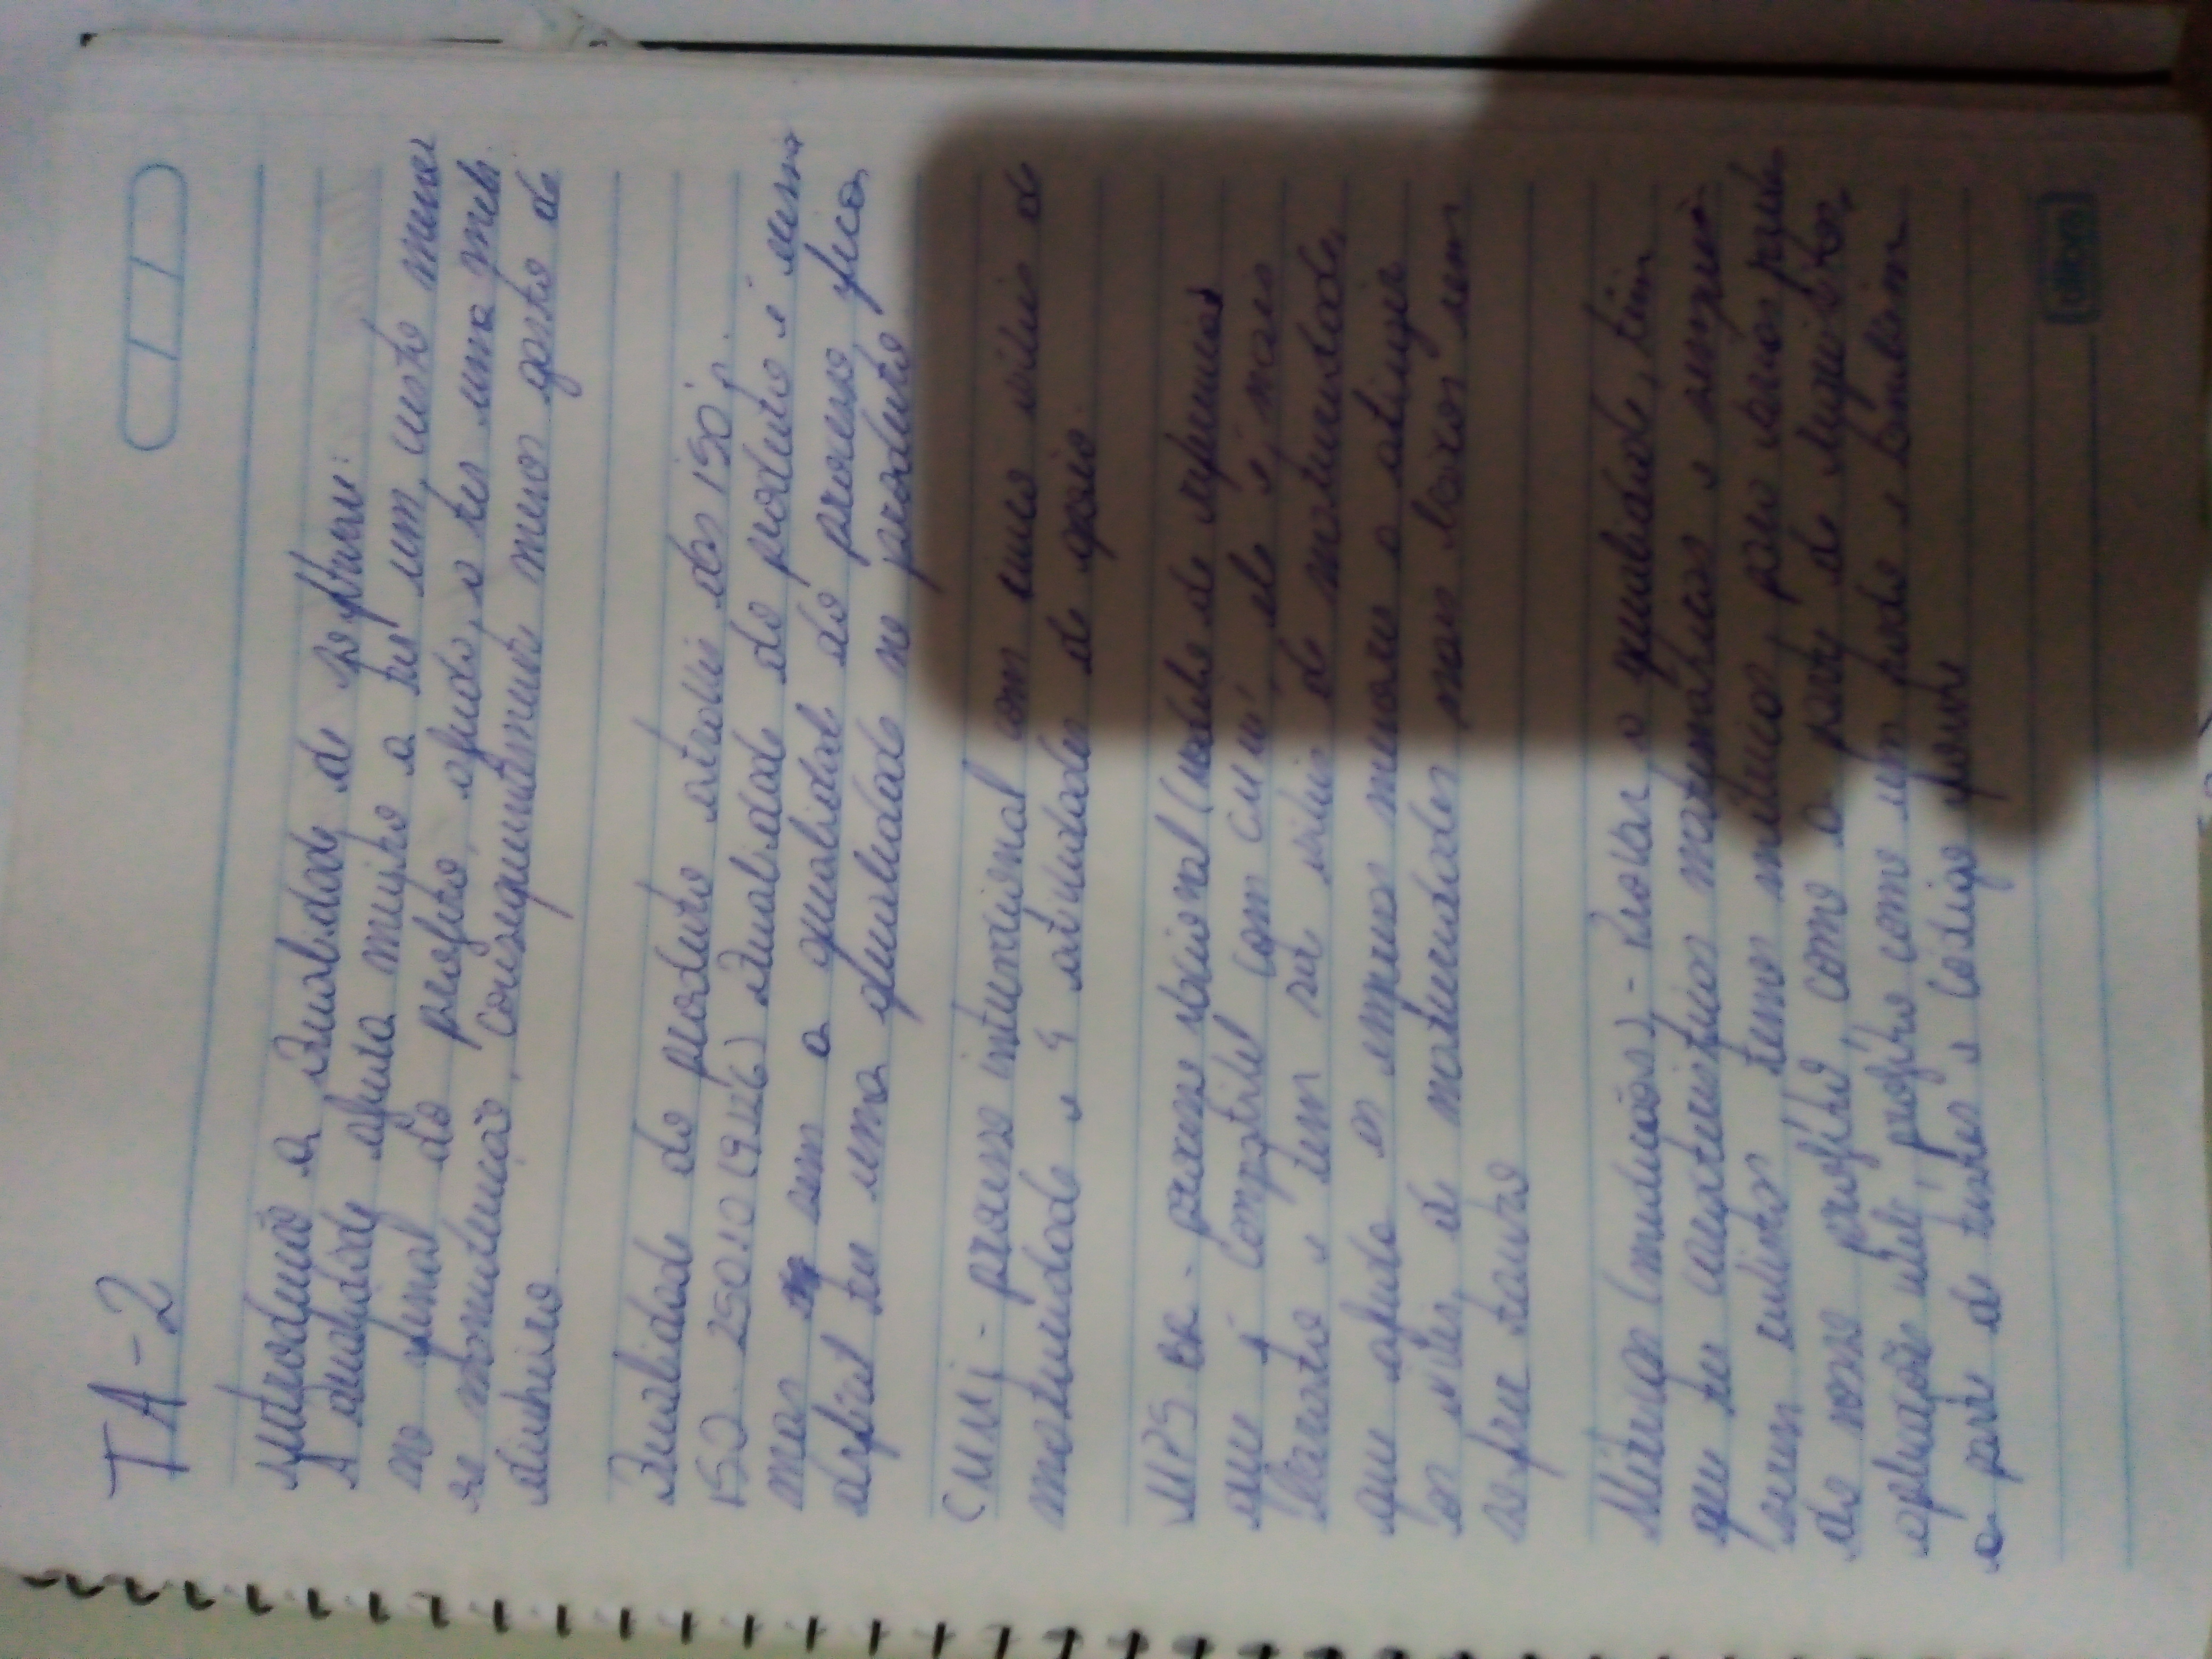 TA-2
Introdução a Qualidade de software:
A qualidade ajuda muito a ter um custo menor
no final do projeto, ajuda a ter uma
manutenção, consequentemente menos gasto de
dinheiro.
Qualidade do produto através das ISO's
ISO 25010 (9126) Qualidade do produto e
mas sem a qualidade do processo fica
dificil ter uma qualidade no produto
CMMI - processo internacional com cinco níveis de
maturidade e 4 atividades de apoio.
MPS BR - processo nacional (modelo de referencia)
que é compatível com CMMI, ele é mais
barato e tem sete níveis de maturidade,
que ajuda as empresas menores a atingir
os níveis de maturidades mais baixos sem
sofrer tanto
Métricas (medições) - Provar a qualidade, tem
que ter características matemáticas e
serem métricas temos métricas para
do nosso projeto como a parte de requisitos,
aplicação web, projeto como um todo e também
a parte de testes e código fonte